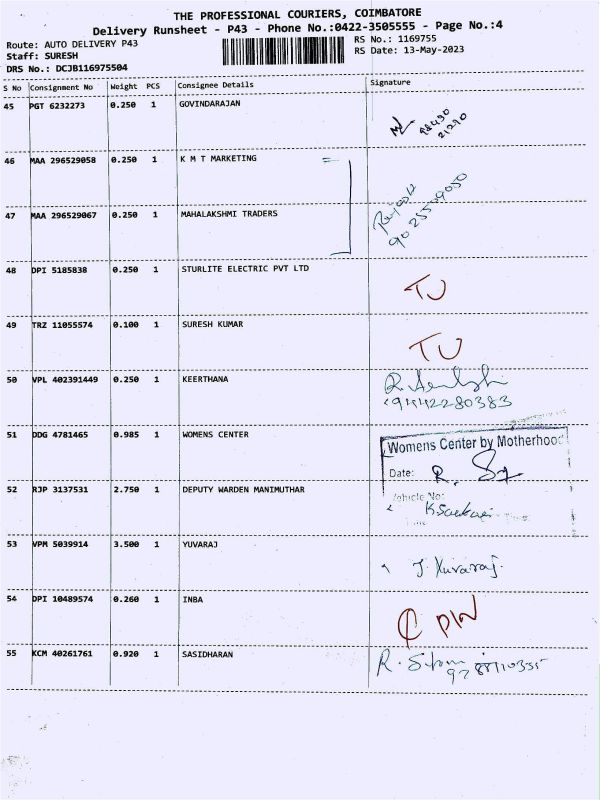 THE PROFESSIONAL COURIERS, COIMBATORE
Delivery Runsheet - P43 - Phone No.:0422-3505555 - Page No.:4
Route: AUTO DELIVERY P43
RS No.: 1169755
Staff: SURESH
RS Date: 13-May-2023
DRS No.: DCJB116975504
S No Consignment No Weight PCS Consignee Details Signature
45 PGT 6232273 0.250 1 GOVINDARAJAN
46 MAA 296529058 0.250 1 K M T MARKETING
47 MAA 296529067 0.250 1 MAHALAKSHMI TRADERS
48 DPI 5185838 0.250 1 STURLITE ELECTRIC PVT LTD
TU
49 TRZ 11055574 0.100 1 SURESH KUMAR
TU
50 VPL 402391449 0.250 1 KEERTHANA
9442280383
51 DDG 4781465 0.985 1 WOMENS CENTER
Womens Center by Motherhood
Date: R.
52 RJP 3137531 2.750 1 DEPUTY WARDEN MANIMUTHAR
Vehicle No:
53 VPM 5039914 3.500 1 YUVARAJ
J. Yuvaraj.
54 DPI 10489574 0.260 1 INBA
55 KCM 40261761 0.920 1 SASIDHARAN